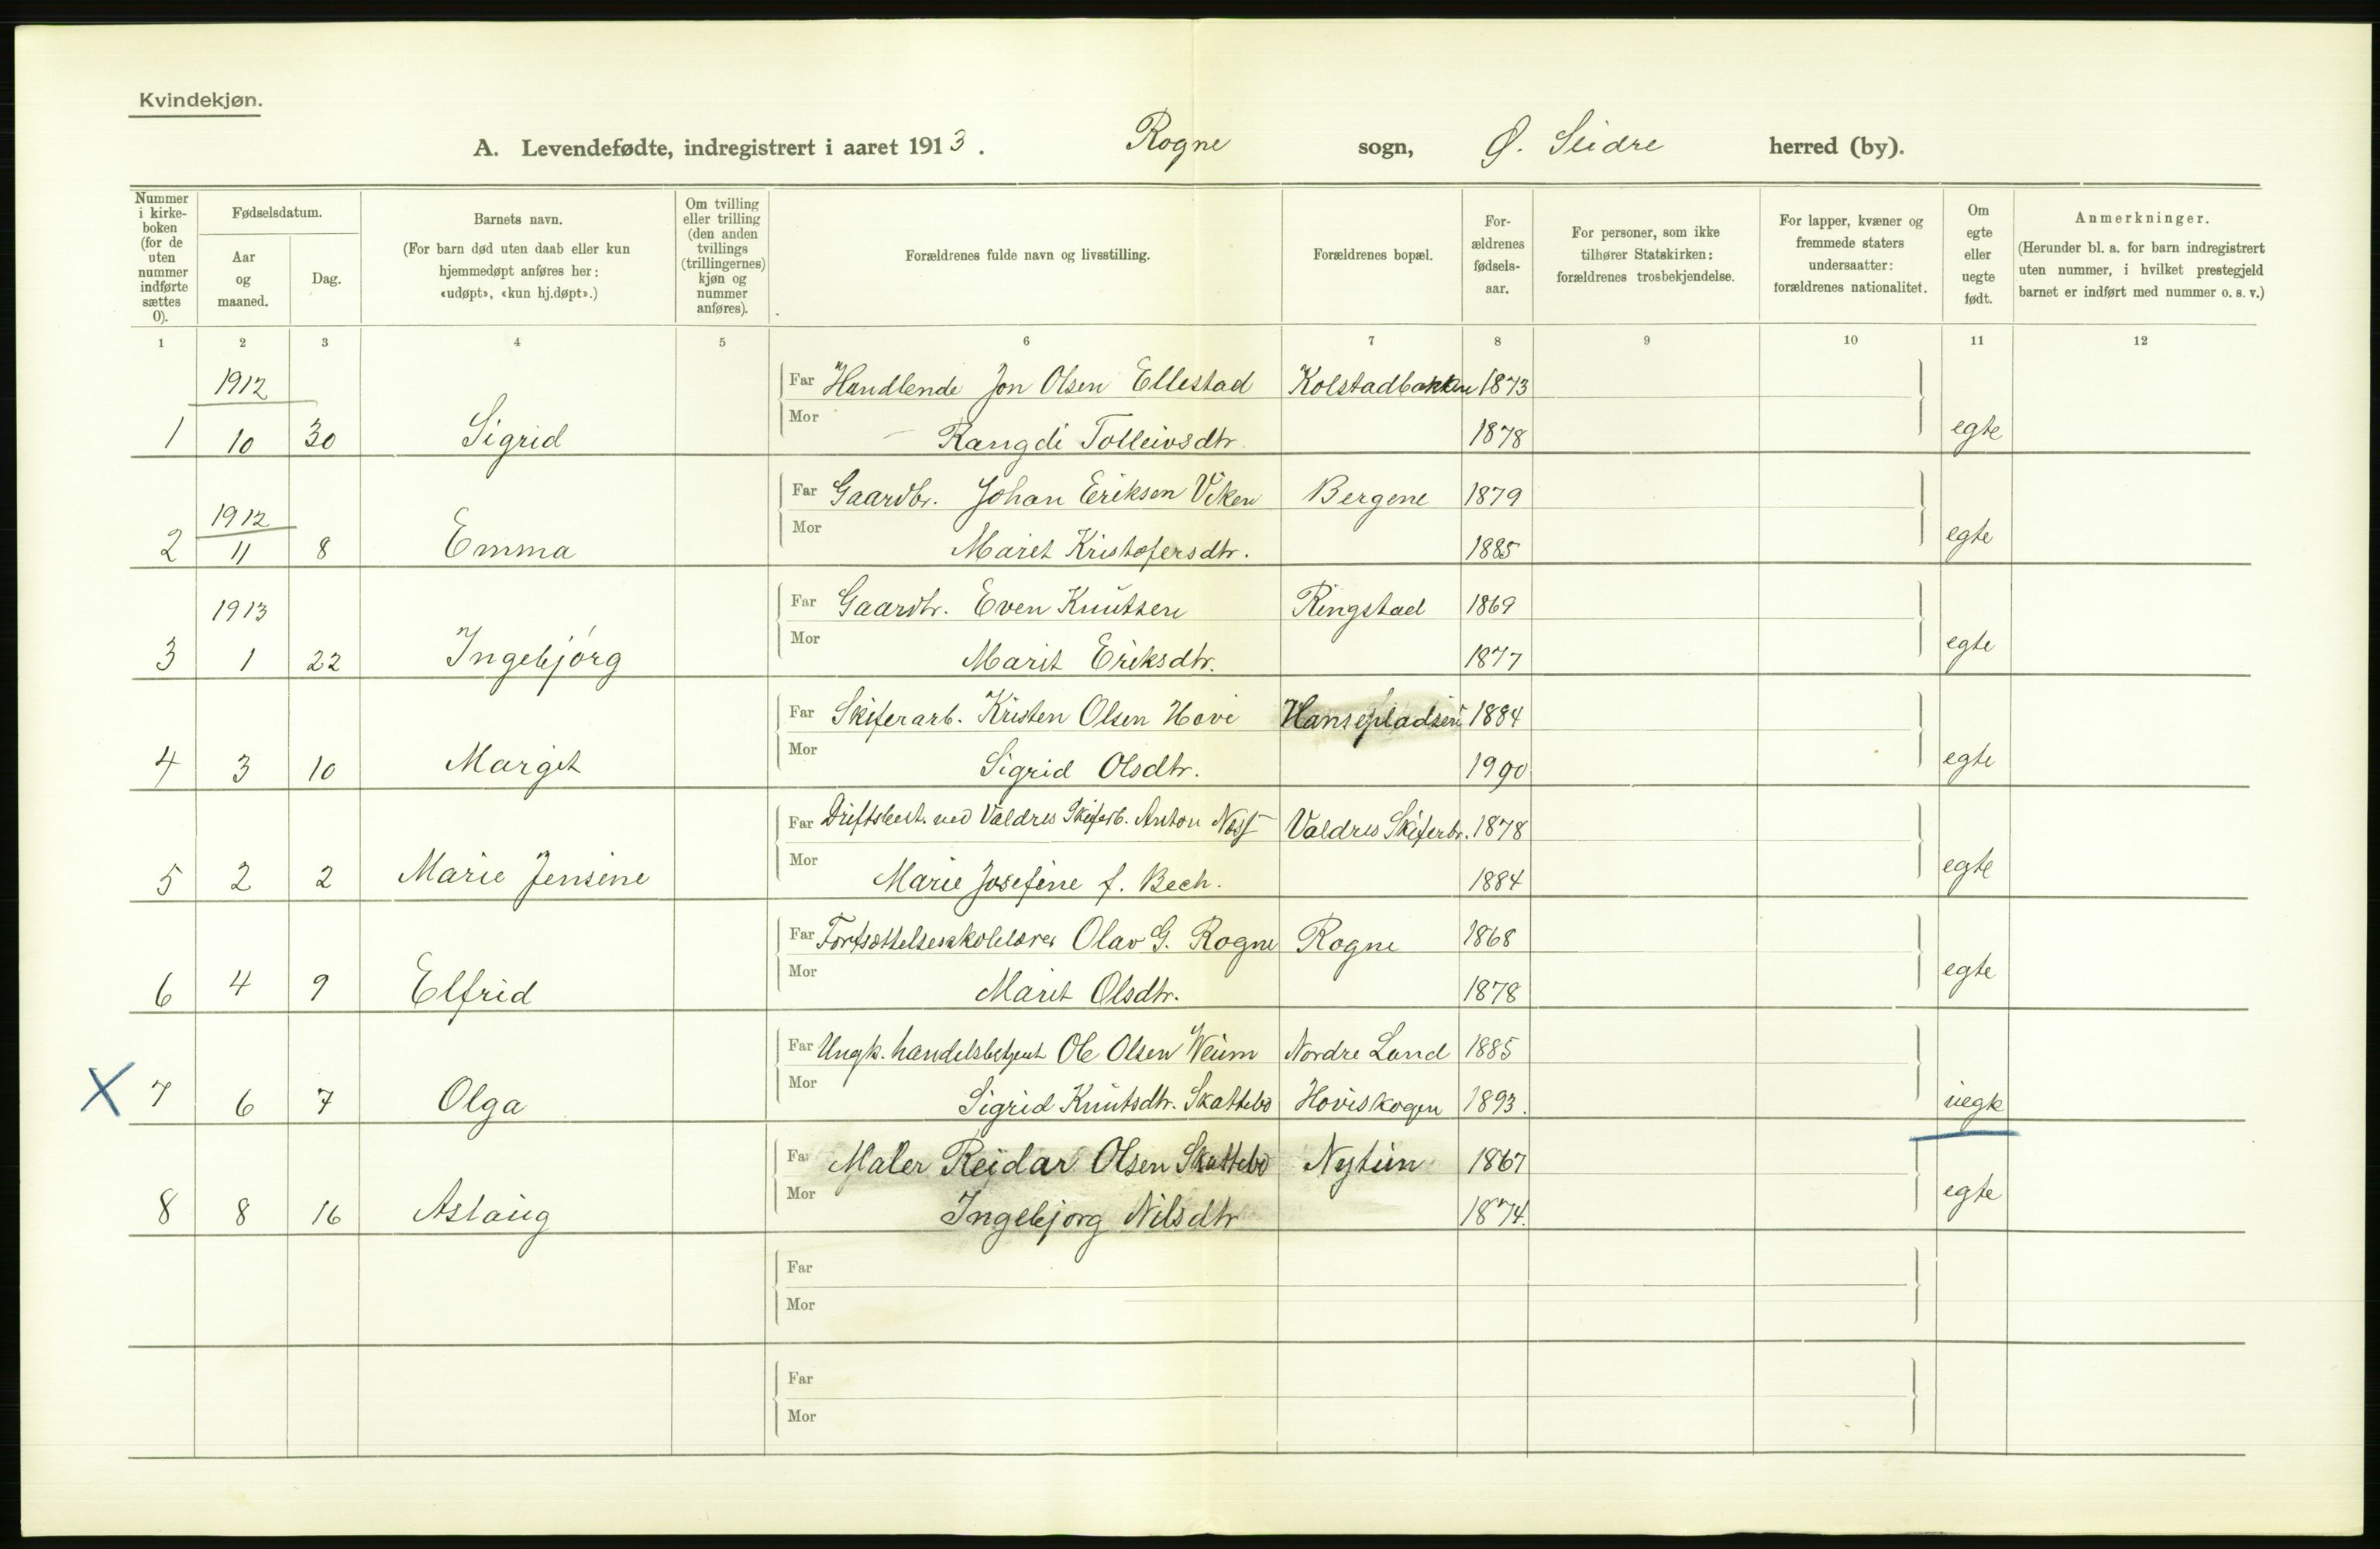 Kvindekjøn.
A. Levendefødte, indregistrert i aaret 1913. Rogne sogn, Ø. Slidre herred (by).
Nummer i kirke-boken (for de uten nummer indførte sættes 0).
Fødselsdatum.
Aar og maaned.
Dag.
Barnets navn.
(For barn død uten daab eller kun hjemmedøpt anføres her: «udøpt», «kun hj.døpt».)
Om tvilling eller trilling (den anden tvillings (trillingernes) kjøn og nummer anføres).
Forældrenes fulde navn og livsstilling.
Forældrenes bopæl.
For-ældrenes fødsels-aar.
For personer, som ikke tilhører Statskirken: forældrenes trosbekjendelse.
For lapper, kvæner og fremmede staters undersaatter: forældrenes nationalitet.
Om egte eller uegte født.
Anmerkninger.
(Herunder bl. a. for barn indregistrert uten nummer, i hvilket prestegjeld barnet er indført med nummer o. s. v.)
1 2 3 4 5 6 7 8 9 10 11 12
1912 Far Handlende Jon Olsen Ellestad Kolstadbakken 1873
1 10 30 Sigrid Mor Rangdi Tolleivsdtr. 1878 egte
1912 Far Gaardbr. Johan Eriksen Viken Bergene 1879
2 11 8 Emma Mor Marit Kristofersdtr. 1885 egte
1913 Far Gaardbr. Even Knutsen Ringstad 1869
3 1 22 Ingebjórg Mor Marit Eriksdtr. 1877 egte
Far Skiferarb. Kristen Olsen Hovi Hansepladsen 1884
4 3 10 Margit Mor Sigrid Olsdtr. 1990 egte
Far Driftsbest. ved Valdres Skiferb. Anton Næss Valdres Skiferbr. 1878
5 2 2 Marie Jensine Mor Marie Josefine f. Bech. 1884 egte
Far Fortsættelsesskolelærer Olav G. Rogne Rogne 1868
6 4 9 Elfrid Mor Marit Olsdtr. 1878 egte
Far Ungk. handelsbetjent Ole Olsen Weium Nordre Land 1885
X 7 6 7 Olga Mor Sigrid Knutsdtr. Skattebo Hoviskogen 1893. uegte
Far Maler Reidar Olsen Skattebo Nytun 1867
8 8 16 Aslaug Mor Ingebjorg Nilsdtr 1874. egte
Far
Mor
Far
Mor